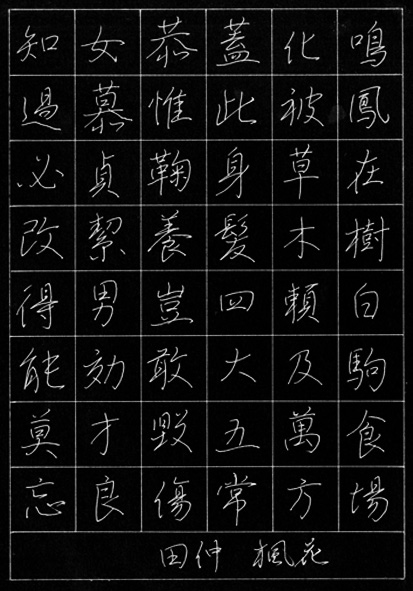 鳴鳳在樹白駒食場
化被草木頼及萬方
蓋此身髮四大五常
恭惟鞠養豈敢毀傷
女慕貞絜男効才良
知過必改得能莫忘
田仲 楓花